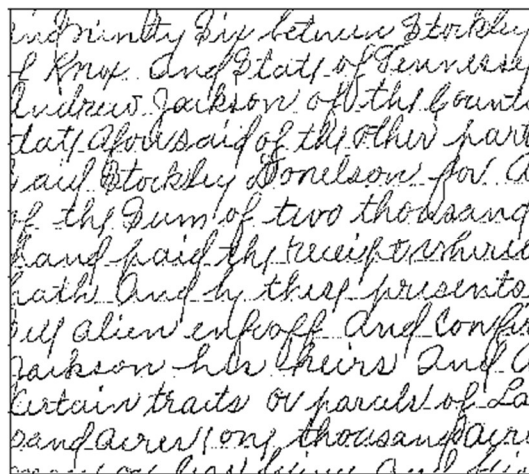 and ninety Six between Stockley
Knox and State of Tennessee
Andrew Jackson of the Count
State aforesaid of the other par
Said Stockley Donelson for a
of the Sum of two thousand
hand paid the receipt where
hath and by these presents
sell alien enfeoff and Confi
Jackson his heirs and a
Certain tracts or parcels of La
sand acres one thousand acre